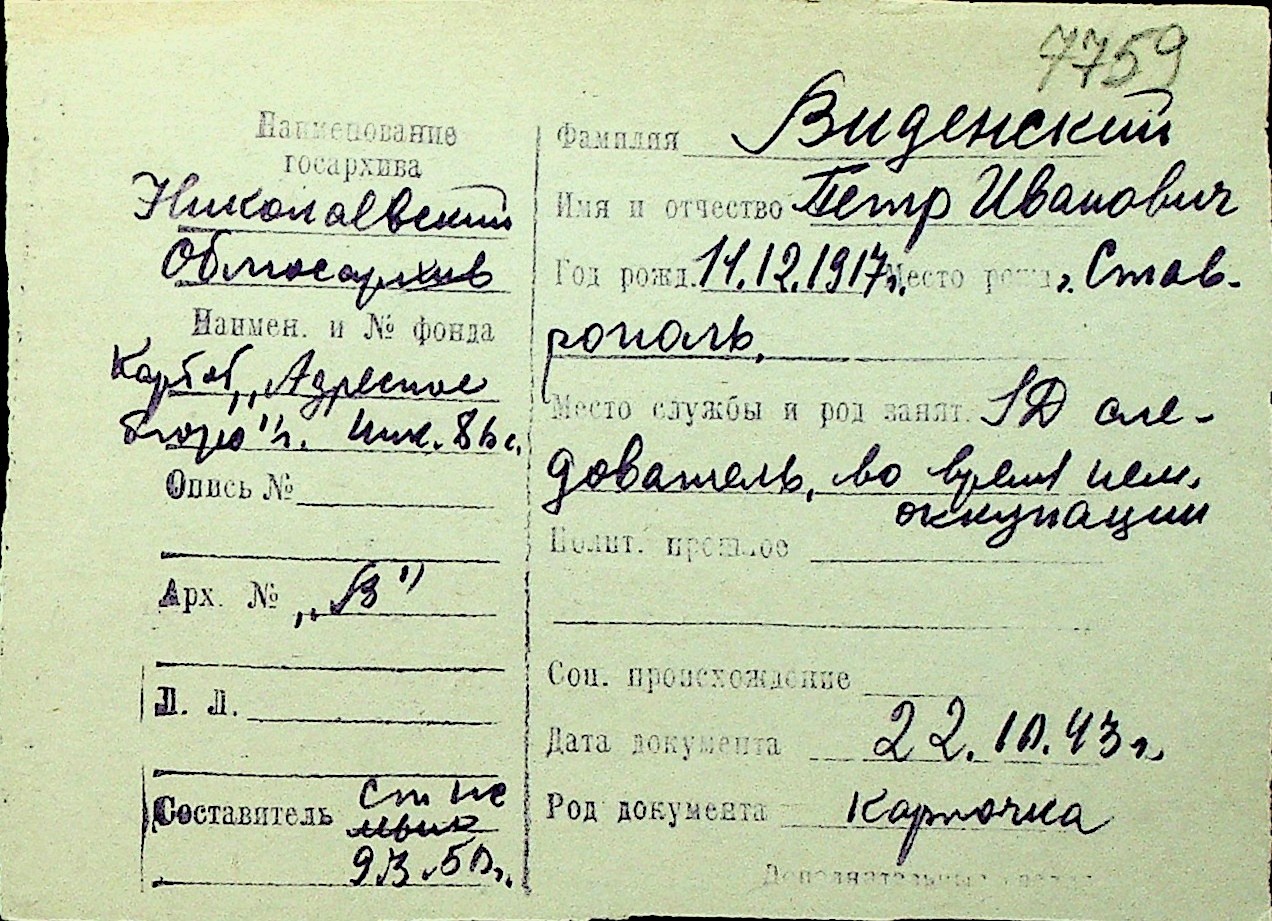 7759
Наименование
госархива
Николаевский
Облгосархив
Наимен. и № фонда
Картот. „Адресное
бюро" г. Ник.
Опись №
Арх. № „В"
Л. Л.
Составитель
Фамилия Виденский
Имя и отчество Петр Иванович
Год рожд. 11.12.1917г. Место рожд. г. Став-
рополь,
Место службы и род занят. SD сле-
дователь, во время нем.
оккупации
Полит. прошлое
Соц. происхождение
Дата документа 22.10.43 г.
Род документа Карточка
Дополнительные